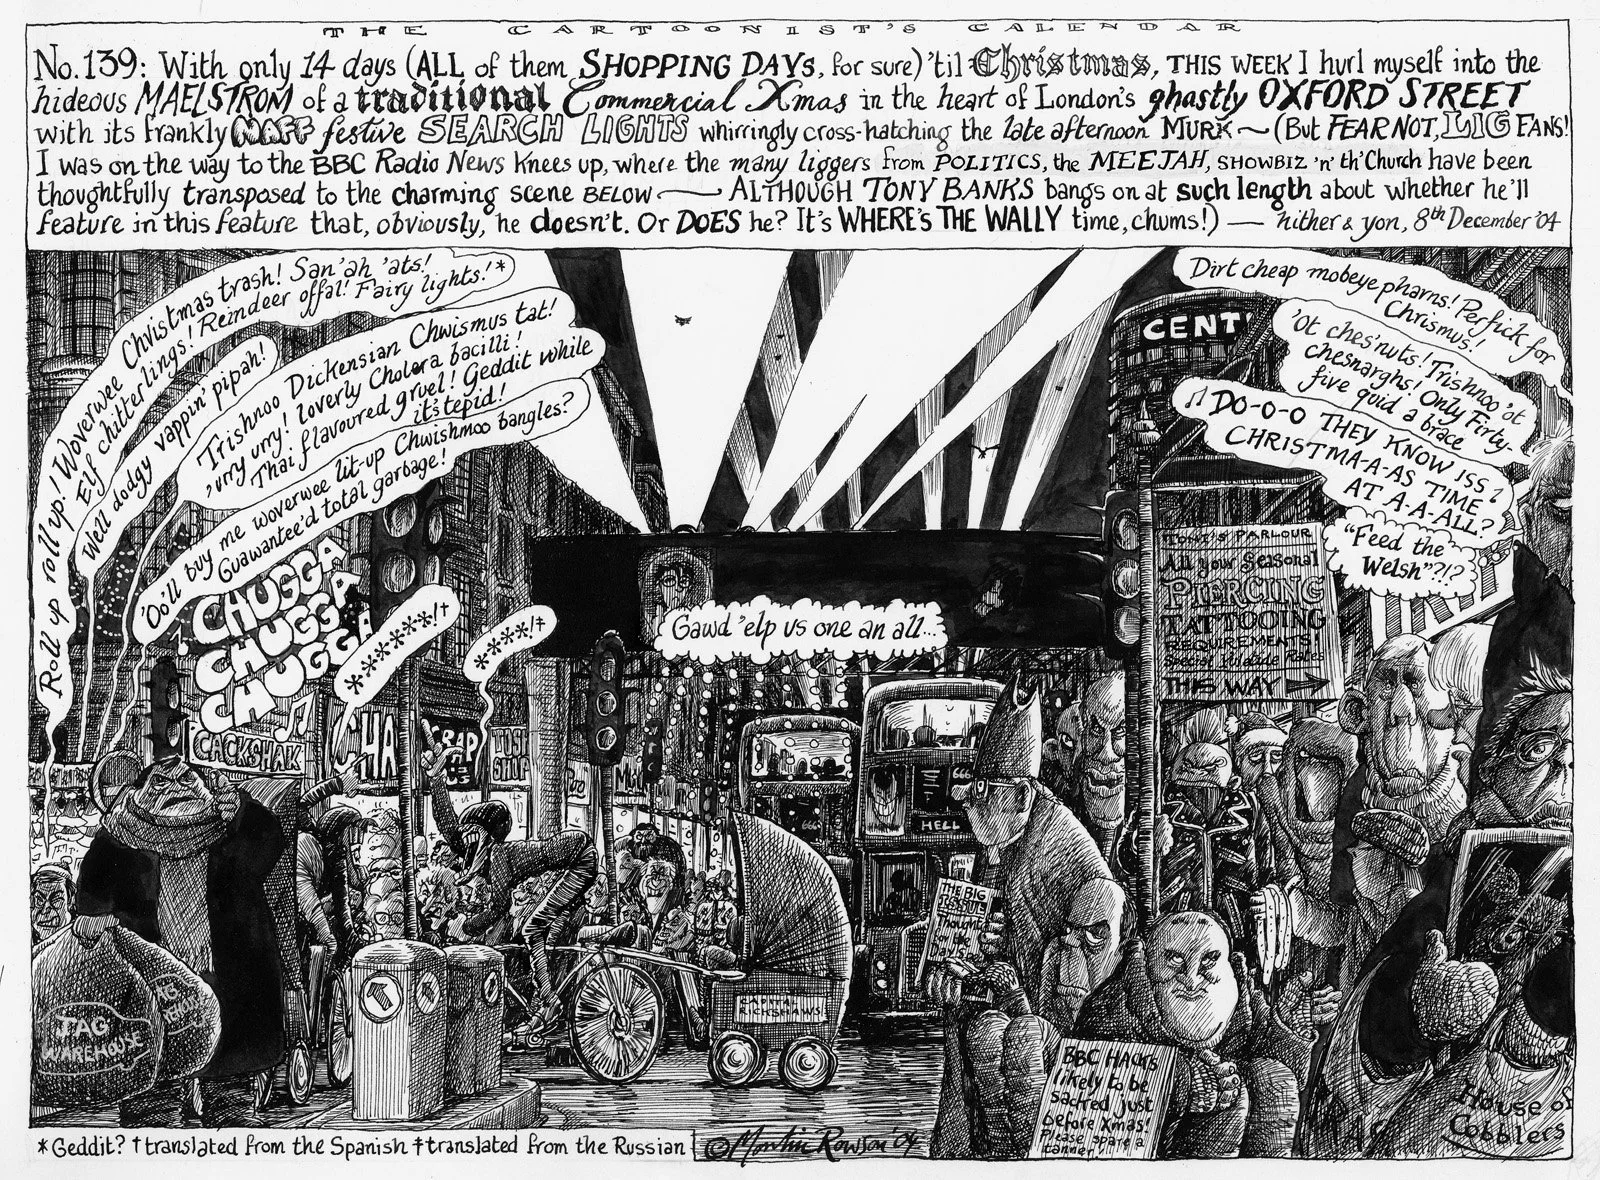 THE CARTOONIST'S CALENDAR
No. 139: With only 14 days (ALL of them SHOPPING DAYS, for sure) 'til Christmas, THIS WEEK I hurl myself into the
hideous MAELSTROM of a traditional Commercial Xmas in the heart of London's ghastly OXFORD STREET
with its frankly NAFF festive SEARCH LIGHTS whirringly cross-hatching the late afternoon MURK ~ (But FEAR NOT, LIG FANS!
I was on the way to the BBC Radio News Knees up, where the many liggers from POLITICS, the MEEJAH, SHOWBIZ 'n' th' Church have been
thoughtfully transposed to the charming scene BELOW — ALTHOUGH TONY BANKS bangs on at such length about whether he'll
feature in this feature that, obviously, he doesn't. Or DOES he? It's WHERE'S THE WALLY time, chums!) — hither & yon, 8th December '04
Roll up roll up! Woverwee Christmas trash! San'ah 'ats!
Elf chitterlings! Reindeer offal! Fairy lights!*
Well dodgy vappin' pipah!
'Trishnoo Dickensian Chwismus tat!
'urry urry! loverly Cholera bacilli!
Thai flavoured gruel! Geddit while
it's tepid!
'Oo'll buy me woverwee lit-up Chwishmoo bangles?
Guawantee'd total garbage!
CHUGGA
CHUGGA
CHUGGA
CHUGGA
*******!†
****!‡
Gawd 'elp us one an all...
Dirt cheap mobeye pharns! Perfick for
Chrismus!
'Ot ches'nuts! Trishnoo 'ot
chesnarghs! Only Firty-
five quid a brace
DO-O-O THEY KNOW ISS
CHRISTMA-A-AS TIME
AT A-A-ALL?
"Feed the
Welsh"?!?
CENT
TONI'S PARLOUR
All your Seasonal
PIERCING
TATTOOING
REQUIREMENTS!
Special Yuletide Rates
THIS WAY
CACKSHAK
CHA
CRAP
TOSH
SHOP
666
666
HELL
THE BIG
Thought
for the
CAPITAL
RICKSHAWS
TAG
WAREHOUSE
BBC HACKS
likely to be
sacred just
before Xmas!
Please spare a
House of
Cobblers
*Geddit? †translated from the Spanish ‡translated from the Russian
© Martin Rowson '04